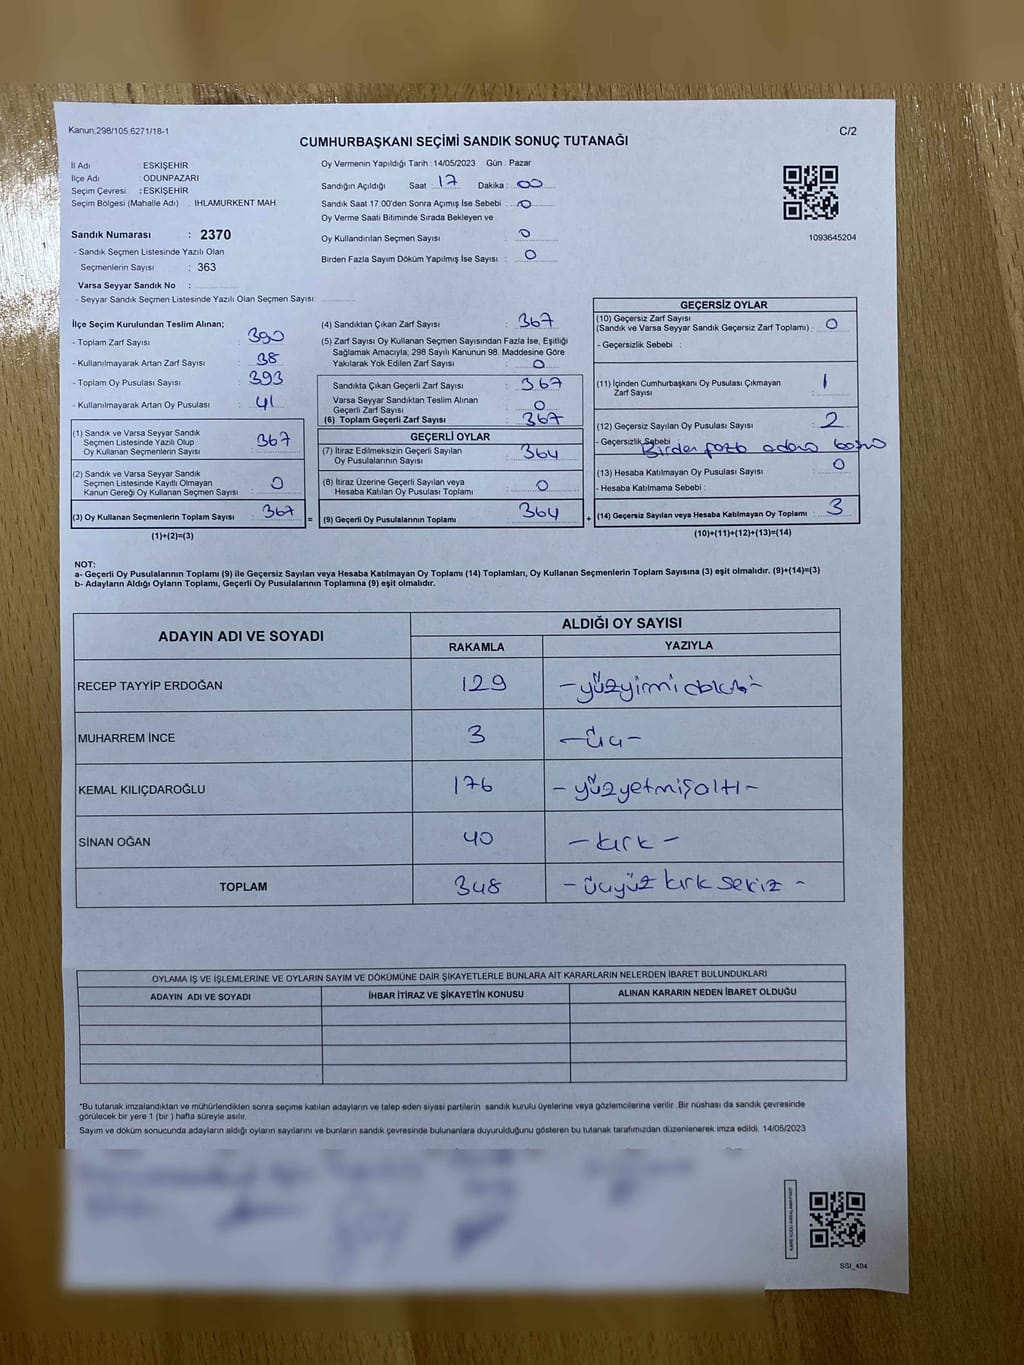 Kanun,298/105,6271/18-1
C/2
CUMHURBAŞKANI SEÇİMİ SANDIK SONUÇ TUTANAĞI
İl Adı : ESKİŞEHİR
İlçe Adı : ODUNPAZARI
Seçim Çevresi : ESKİŞEHİR
Seçim Bölgesi (Mahalle Adı) : IHLAMURKENT MAH.
Sandık Numarası : 2370
- Sandık Seçmen Listesinde Yazılı Olan
Seçmenlerin Sayısı : 363
Varsa Seyyar Sandık No :
- Seyyar Sandık Seçmen Listesinde Yazılı Olan Seçmen Sayısı:
Oy Vermenin Yapıldığı Tarih : 14/05/2023 Gün : Pazar
Sandığın Açıldığı Saat : 17 Dakika : 00
Sandık Saat 17.00'den Sonra Açımış İse Sebebi : 0
Oy Verme Saati Bitiminde Sırada Bekleyen ve
Oy Kullandırılan Seçmen Sayısı : 0
Birden Fazla Sayım Döküm Yapılmış İse Sayısı : 0
1093645204
İlçe Seçim Kurulundan Teslim Alınan;
- Toplam Zarf Sayısı : 390
- Kullanılmayarak Artan Zarf Sayısı : 38
- Toplam Oy Pusulası Sayısı : 393
- Kullanılmayarak Artan Oy Pusulası : 41
(1) Sandık ve Varsa Seyyar Sandık
Seçmen Listesinde Yazılı Olup
Oy Kullanan Seçmenlerin Sayısı : 367
(2) Sandık ve Varsa Seyyar Sandık
Seçmen Listesinde Kayıtlı Olmayan
Kanun Gereği Oy Kullanan Seçmen Sayısı : 0
(3) Oy Kullanan Seçmenlerin Toplam Sayısı : 367
(1)+(2)=(3)
(4) Sandıktan Çıkan Zarf Sayısı : 367
(5) Zarf Sayısı Oy Kullanan Seçmen Sayısından Fazla İse, Eşitliği
Sağlamak Amacıyla, 298 Sayılı Kanunun 98. Maddesine Göre
Yakılarak Yok Edilen Zarf Sayısı : 0
Sandıkta Çıkan Geçerli Zarf Sayısı : 367
Varsa Seyyar Sandıktan Teslim Alınan
Geçerli Zarf Sayısı : 0
(6) Toplam Geçerli Zarf Sayısı : 367
GEÇERLİ OYLAR
(7) İtiraz Edilmeksizin Geçerli Sayılan
Oy Pusulalarının Sayısı : 364
(8) İtiraz Üzerine Geçerli Sayılan veya
Hesaba Katılan Oy Pusulası Toplamı : 0
= (9) Geçerli Oy Pusulalarının Toplamı : 364
GEÇERSİZ OYLAR
(10) Geçersiz Zarf Sayısı
(Sandık ve Varsa Seyyar Sandık Geçersiz Zarf Toplamı) : 0
- Geçersizlik Sebebi :
(11) İçinden Cumhurbaşkanı Oy Pusulası Çıkmayan
Zarf Sayısı : 1
(12) Geçersiz Sayılan Oy Pusulası Sayısı : 2
- Geçersizlik Sebebi : Birden fazla adaya
(13) Hesaba Katılmayan Oy Pusulası Sayısı : 0
- Hesaba Katılmama Sebebi :
+ (14) Geçersiz Sayılan veya Hesaba Katılmayan Oy Toplamı : 3
(10)+(11)+(12)+(13)=(14)
NOT:
a- Geçerli Oy Pusulalarının Toplamı (9) ile Geçersiz Sayılan veya Hesaba Katılmayan Oy Toplamı (14) Toplamları, Oy Kullanan Seçmenlerin Toplam Sayısına (3) eşit olmalıdır. (9)+(14)=(3)
b- Adayların Aldığı Oyların Toplamı, Geçerli Oy Pusulalarının Toplamına (9) eşit olmalıdır.
ADAYIN ADI VE SOYADI ALDIĞI OY SAYISI
RAKAMLA YAZIYLA
RECEP TAYYİP ERDOĞAN 129 -yüzyirmidokuz-
MUHARREM İNCE 3 -üç-
KEMAL KILIÇDAROĞLU 176 -yüzyetmişaltı-
SİNAN OĞAN 40 -kırk-
TOPLAM 348 -üçyüz kırk sekiz-
OYLAMA İŞ VE İŞLEMLERİNE VE OYLARIN SAYIM VE DÖKÜMÜNE DAİR ŞİKAYETLERLE BUNLARA AİT KARARLARIN NELERDEN İBARET BULUNDUKLARI
ADAYIN ADI VE SOYADI İHBAR İTİRAZ VE ŞİKAYETİN KONUSU ALINAN KARARIN NEDEN İBARET OLDUĞU
*Bu tutanak imzalandıktan ve mühürlendikten sonra seçime katılan adayların ve talep eden siyasi partilerin sandık kurulu üyelerine veya gözlemcilerine verilir. Bir nüshası da sandık çevresinde
görülecek bir yere 1 (bir ) hafta süreyle asılır.
Sayım ve döküm sonucunda adayların aldığı oyların sayılarını ve bunların sandık çevresinde bulunanlara duyurulduğunu gösteren bu tutanak tarafımızdan düzenlenerek imza edildi. 14/05/2023
SSI_404